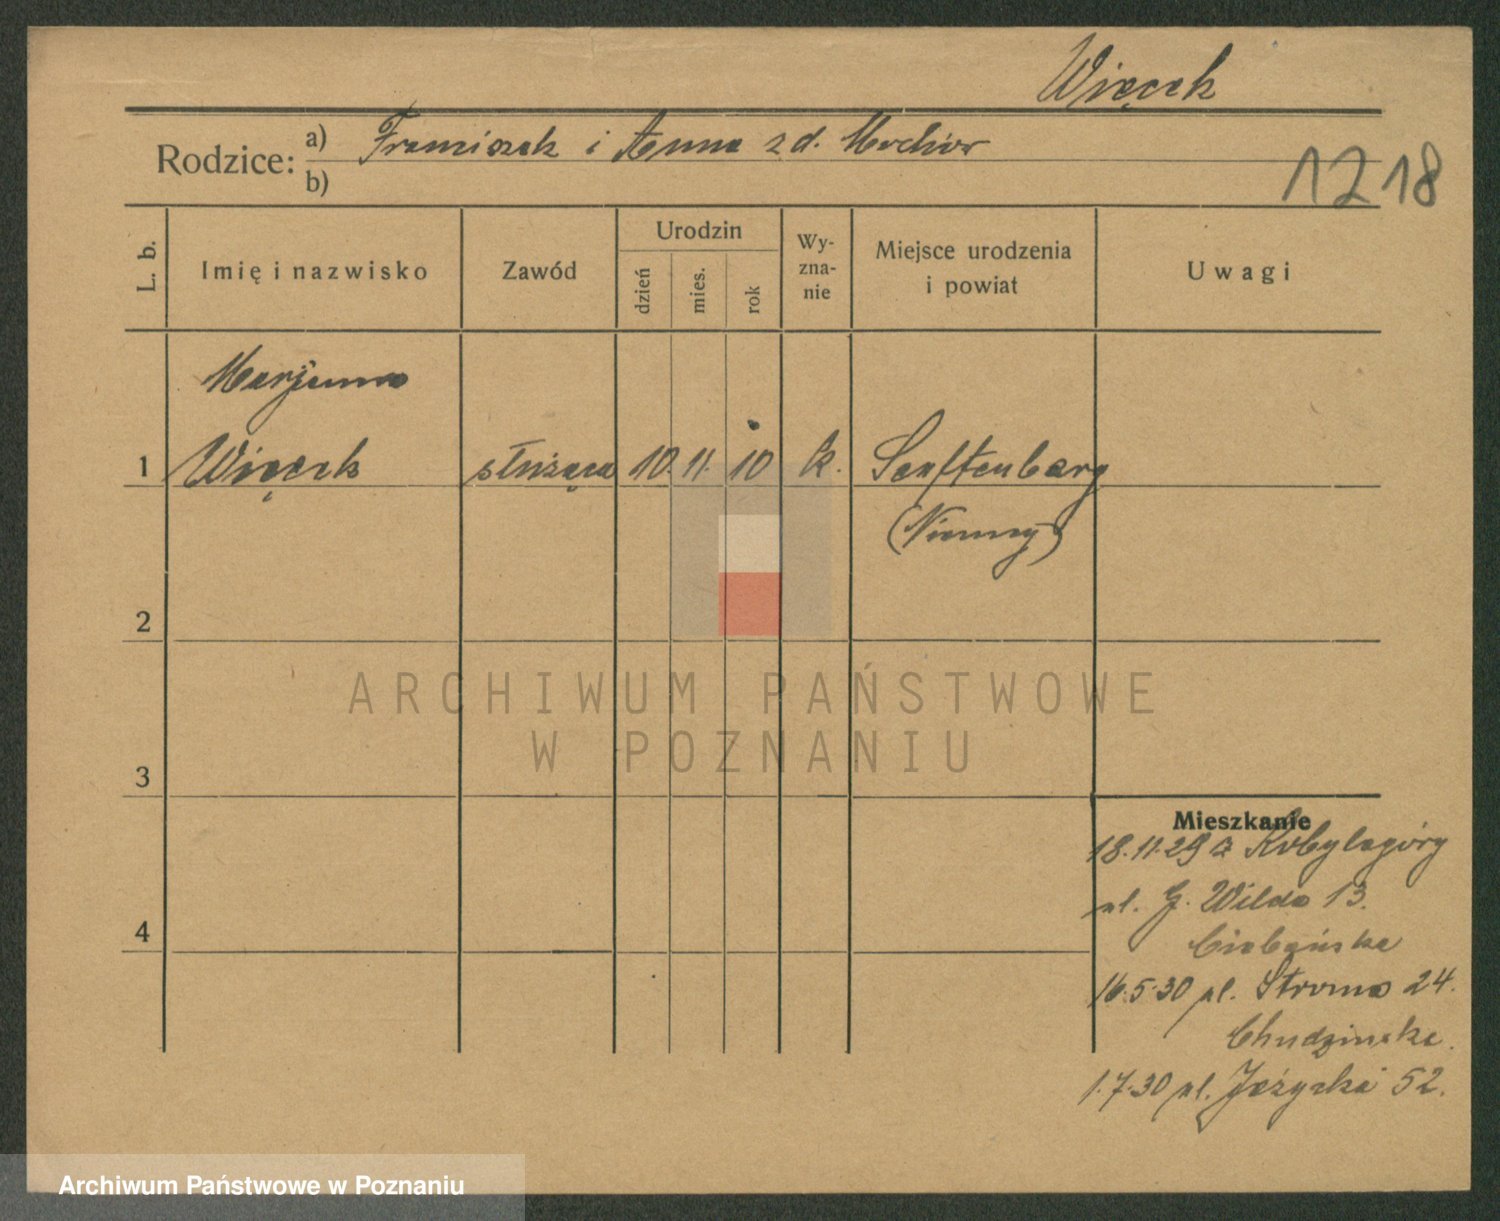 Więcek
Rodzice: a) Franciszek i Anna z d. Mochór
b)
1218
L. b.
Imię i nazwisko
Zawód
Urodzin
dzień
mies.
rok
Wy-
zna-
nie
Miejsce urodzenia
i powiat
Uwagi
Marjanna
1 Więcek służąca 10. 11. 10 k. Senftenberg
(Niemcy)
2
3
4
ARCHIWUM PAŃSTWOWE
W POZNANIU
Mieszkanie
18.11.29 z Kobylagóry
pl. G. Wilda 13.
16.5.30 pl. Stroma 24.
Chudzinska.
1.7.30 pl. Jeżycka 52.
Archiwum Państwowe w Poznaniu